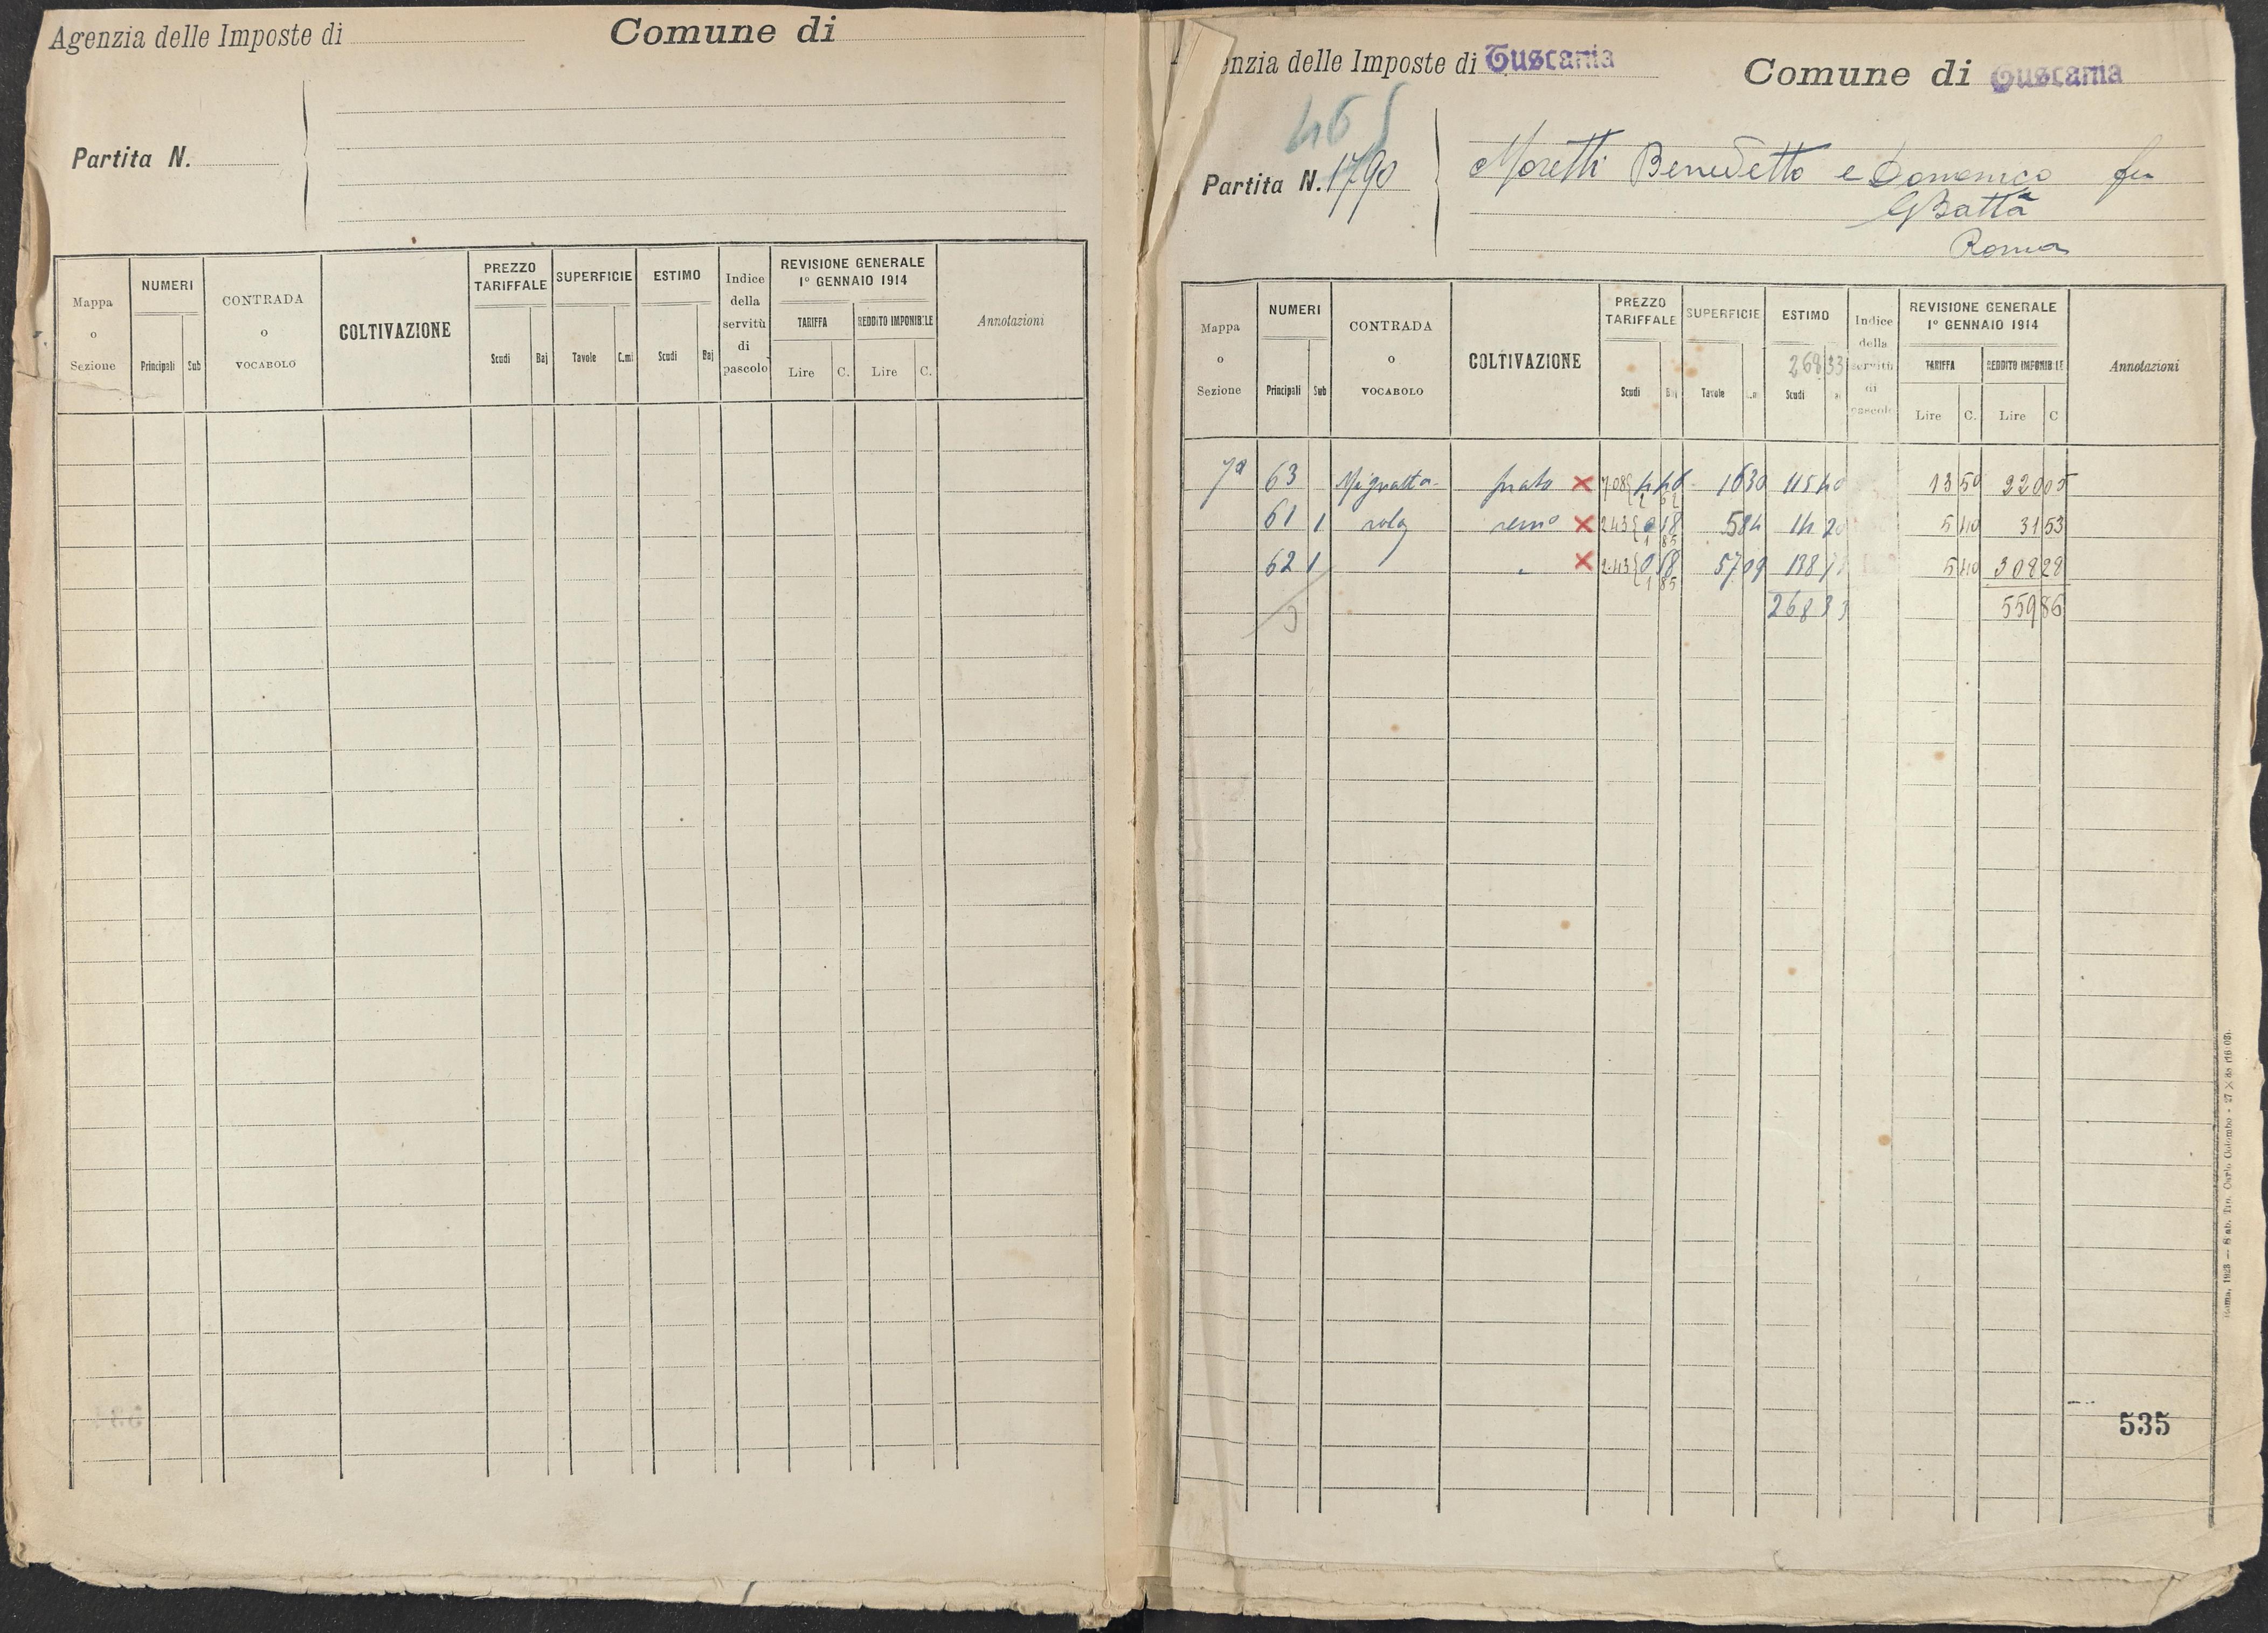 Agenzia delle Imposte di
Comune di
Partita N.
Mappa o Sezione
NUMERI
Principali Sub
CONTRADA o VOCABOLO
COLTIVAZIONE
PREZZO TARIFFALE
Scudi Baj
SUPERFICIE
Tavole C.mi
ESTIMO
Scudi Baj
Indice della servitù di pascolo
REVISIONE GENERALE
1° GENNAIO 1914
TARIFFA REDDITO IMPONIBILE
Lire C. Lire C.
Annotazioni
enzia delle Imposte di Tuscania
Comune di Tuscania
465
Partita N. 1790
Moretti Benedetto e Domenico fu
GBatta
Roma
Mappa o Sezione
NUMERI
Principali Sub
CONTRADA o VOCABOLO
COLTIVAZIONE
PREZZO TARIFFALE
Scudi Baj
SUPERFICIE
Tavole
ESTIMO
268 33
Scudi
Indice della servitù di pascolo
REVISIONE GENERALE
1° GENNAIO 1914
TARIFFA REDDITO IMPONIBILE
Lire C. Lire C
Annotazioni
7a 63 Mignatta prato 7.08 4 46 2 62 16 30 115 40 13 50 220 05
61 1 rola semo 2.43 0 58 1 85 5 84 14 20 5 40 31 53
62 1 " 2.43 0 58 1 85 57 09 138 5 40 308 28
268 33 559 86
3
535
Roma, 1923 — Stab. Tip. Carlo Colombo